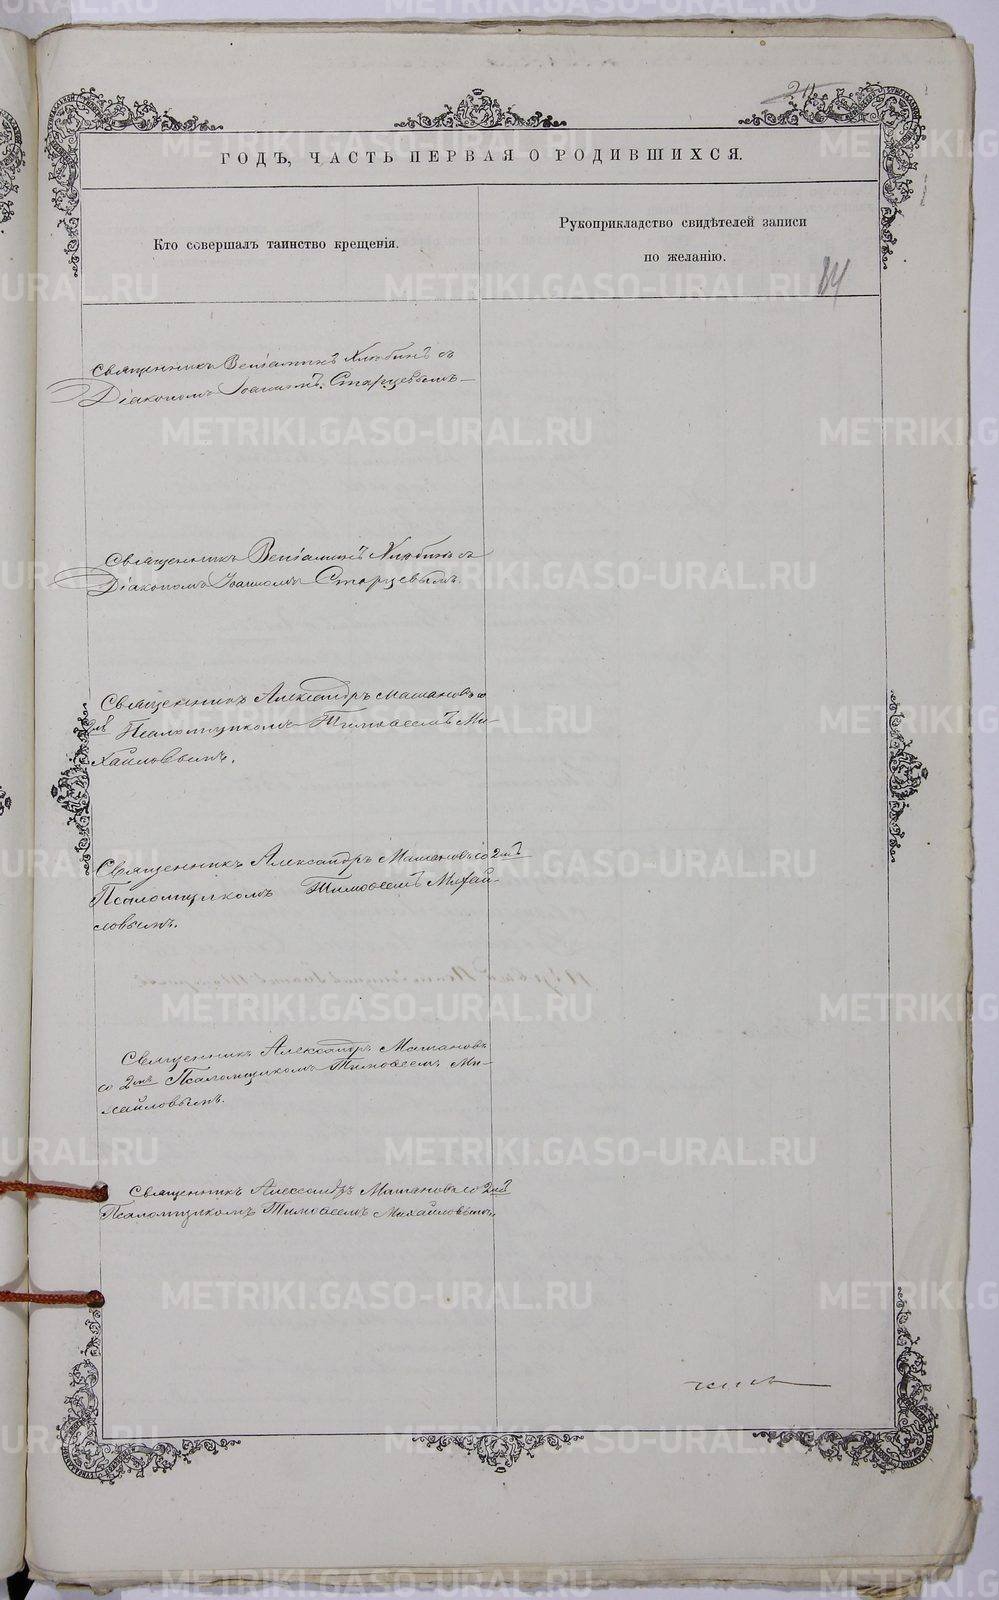 ГОДЪ, ЧАСТЬ ПЕРВАЯ О РОДИВШИХСЯ.
Кто совершалъ таинство крещенія.
Рукоприкладство свидѣтелей записи
по желанію.
84
Священникъ Веніаминъ Хлюбинъ съ
Діакономъ Іоанномъ Старцевымъ
Священникъ Веніаминъ Хлюбинъ съ
Діакономъ Іоанномъ Старцевымъ.
Священникъ Александръ Машановъ со
2мъ Псаломщикомъ Тимоѳеемъ Ми-
хайловымъ.
Священникъ Александръ Машановъ со 2мъ
Псаломщикомъ Тимоѳеемъ Михай-
ловымъ.
Священникъ Александръ Машановъ
со 2мъ Псаломщикомъ Тимоѳеемъ Ми-
хайловымъ.
Священникъ Александръ Машановъ со 2мъ
Псаломщикомъ Тимоѳеемъ Михайловымъ.
METRIKI.GASO-URAL.RU